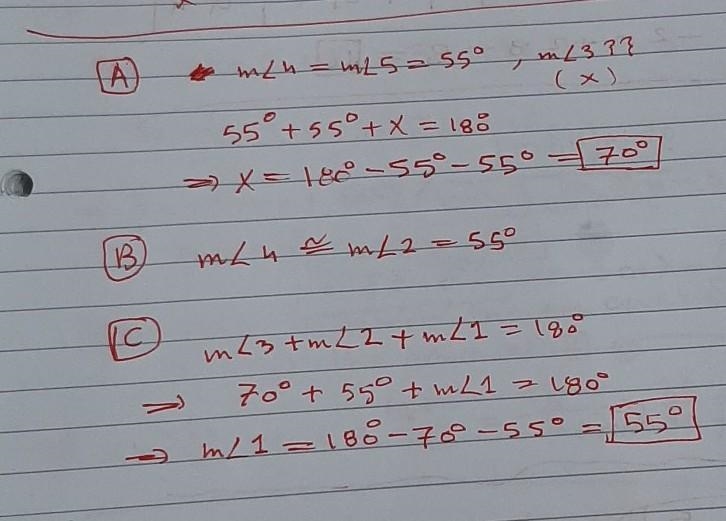 A m∠4 = m∠5 = 55°, m∠3 ??
(x)
55° + 55° + x = 180°
⇒ x = 180° − 55° − 55° = 70°
B m∠4 ≅ m∠2 = 55°
C m∠3 + m∠2 + m∠1 = 180°
⇒ 70° + 55° + m∠1 = 180°
⇒ m∠1 = 180° − 70° − 55° = 55°